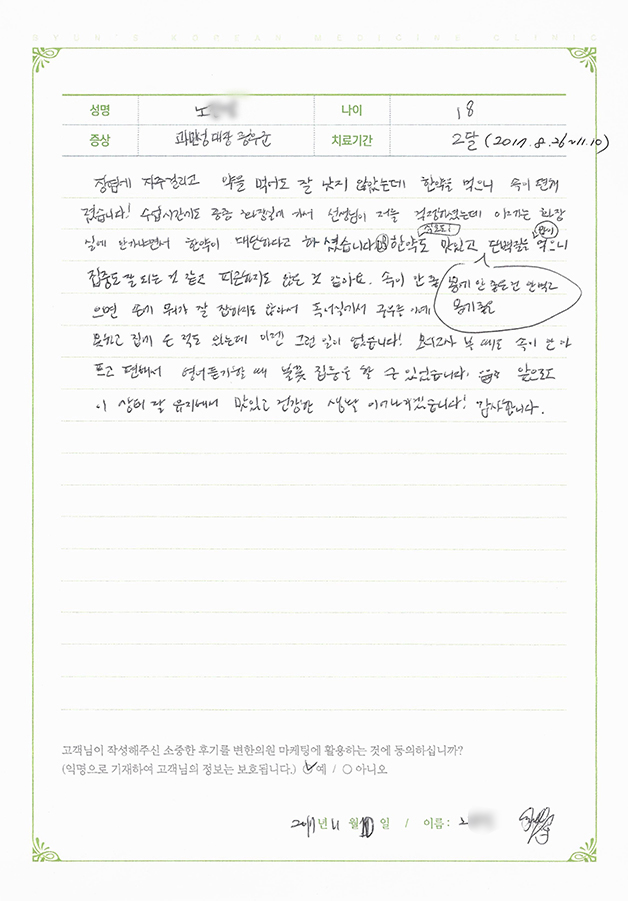 BYUN'S KOREAN MEDICINE CLINIC
성명 노 나이 18
증상 과민성 대장 증후군 치료기간 2달 (2017. 8. 26 ~ 11. 10)
장염에 자주걸리고 약을 먹어도 잘 낫지 않았는데 한약을 먹으니 속이 편해
졌습니다! 수업시간에도 종종 화장실에 가서 선생님이 저를 걱정하셨는데 이제는 화장
실에 안가냐면서 한약이 대단하다고 하셨습니다 한약도 맛있고 단백질을 많이 먹으니
집중도 잘 되는 것 같고 피곤하지도 않은 것 같아요. 속이 안 좋
몸에 안 좋은건 안먹고
으면 뭔가 잘 안 독서실가서 공부를
몸에 좋은
못하고 집에 온 적도 있는데 이젠 그런 일이 없습니다! 모의고사 볼 때도 속이 안 아
프고 편해서 영어듣기할 때 불꽃 집중을 할 수 있었습니다. 앞으로도
이 상태 잘 유지해서 맛있고 건강한 생활 이어나가겠습니다! 감사합니다.
고객님이 작성해주신 소중한 후기를 변한의원 마케팅에 활용하는 것에 동의하십니까?
(익명으로 기재하여 고객님의 정보는 보호됩니다.) ○ 예 / ○ 아니오
2017년 11월 10일 / 이름 : 노